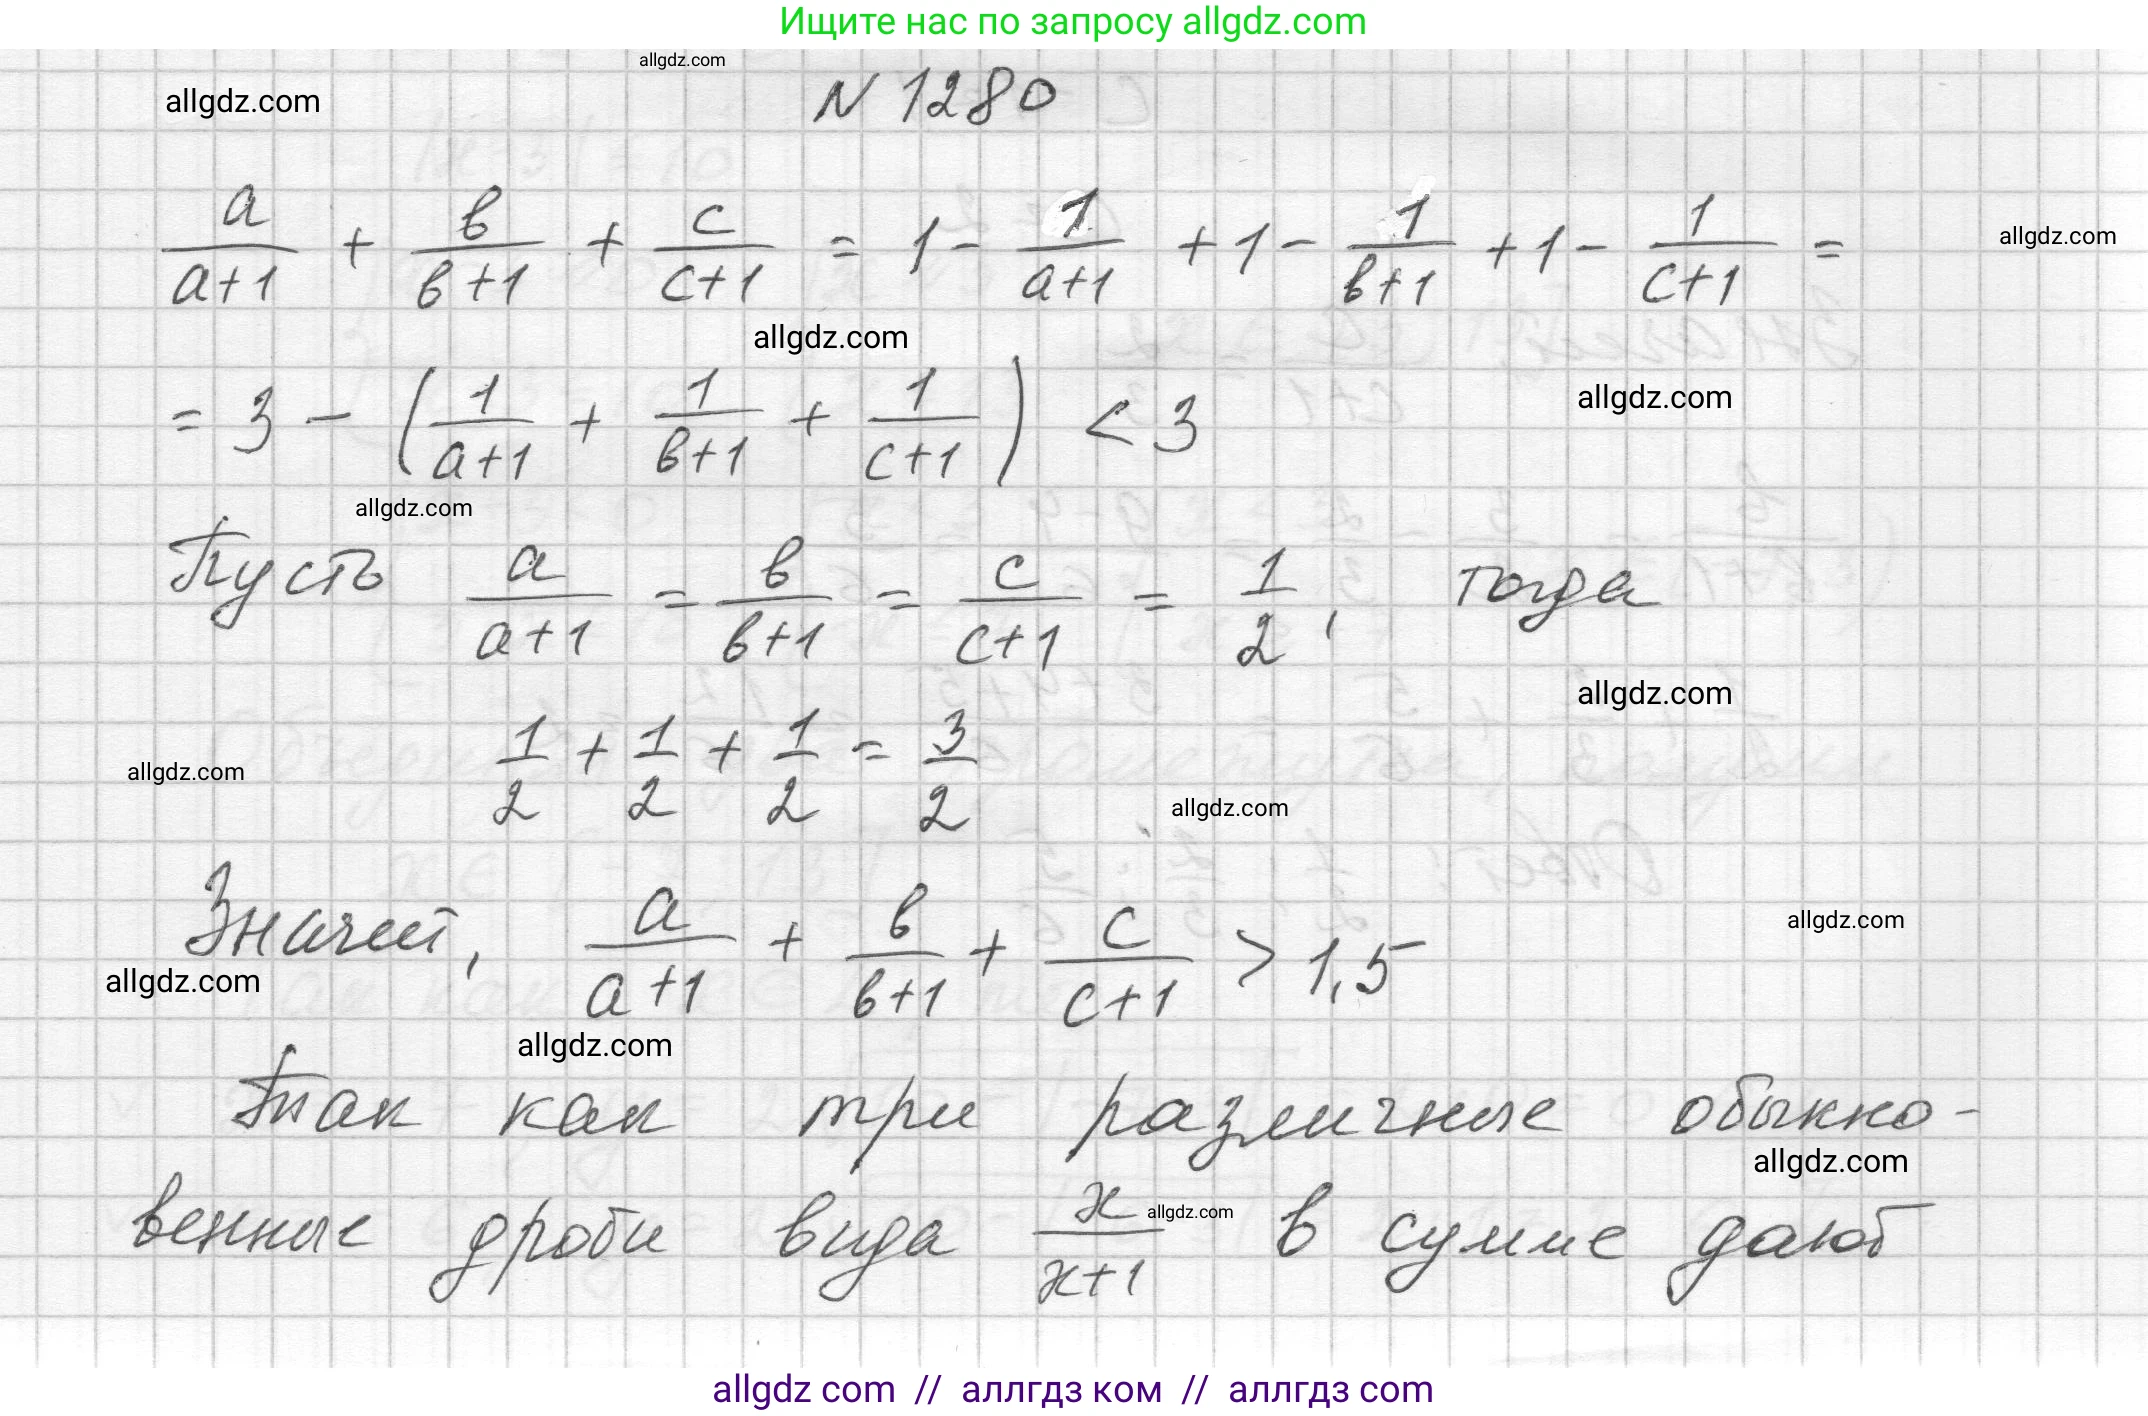 Ищите нас по запросу allgdz.com
allgdz.com
allgdz.com
N 1280
a/(a+1) + в/(в+1) + c/(c+1) = 1 - 1/(a+1) + 1 - 1/(в+1) + 1 - 1/(c+1) =
allgdz.com
allgdz.com
= 3 - (1/(a+1) + 1/(в+1) + 1/(c+1)) < 3
allgdz.com
allgdz.com
Пусть a/(a+1) = в/(в+1) = c/(c+1) = 1/2, тогда
allgdz.com
1/2 + 1/2 + 1/2 = 3/2
allgdz.com
allgdz.com
Значит, a/(a+1) + в/(в+1) + c/(c+1) > 1,5
allgdz.com
allgdz.com
allgdz.com
Так как три различные обыкно-
allgdz.com
венные дроби вида x/(x+1) в сумме дают
allgdz.com
allgdz com // аллгдз ком // аллгдз com